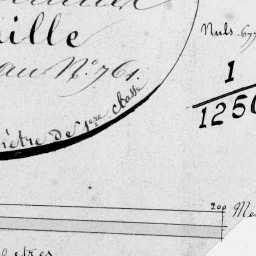 ille
au N.º 761.
mètre de 1ère classe
Nuls. 677
1
1250
200 Me
etres